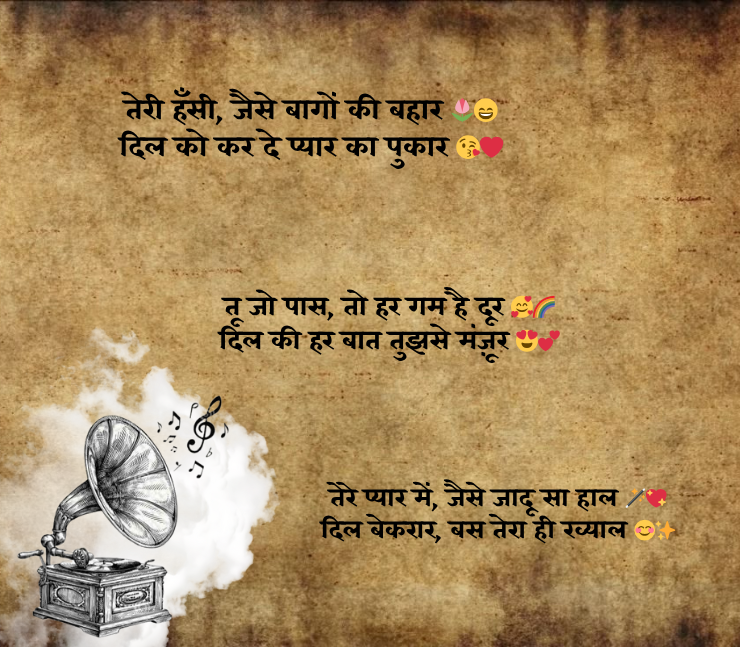 तेरी हँसी, जैसे बागों की बहार 🌷😄
दिल को कर दे प्यार का पुकार 😘❤️
तू जो पास, तो हर गम है दूर 🥰🌈
दिल की हर बात तुझसे मंज़ूर 😍💕
तेरे प्यार में, जैसे जादू सा हाल 🪄💖
दिल बेकरार, बस तेरा ही ख्याल 😊✨